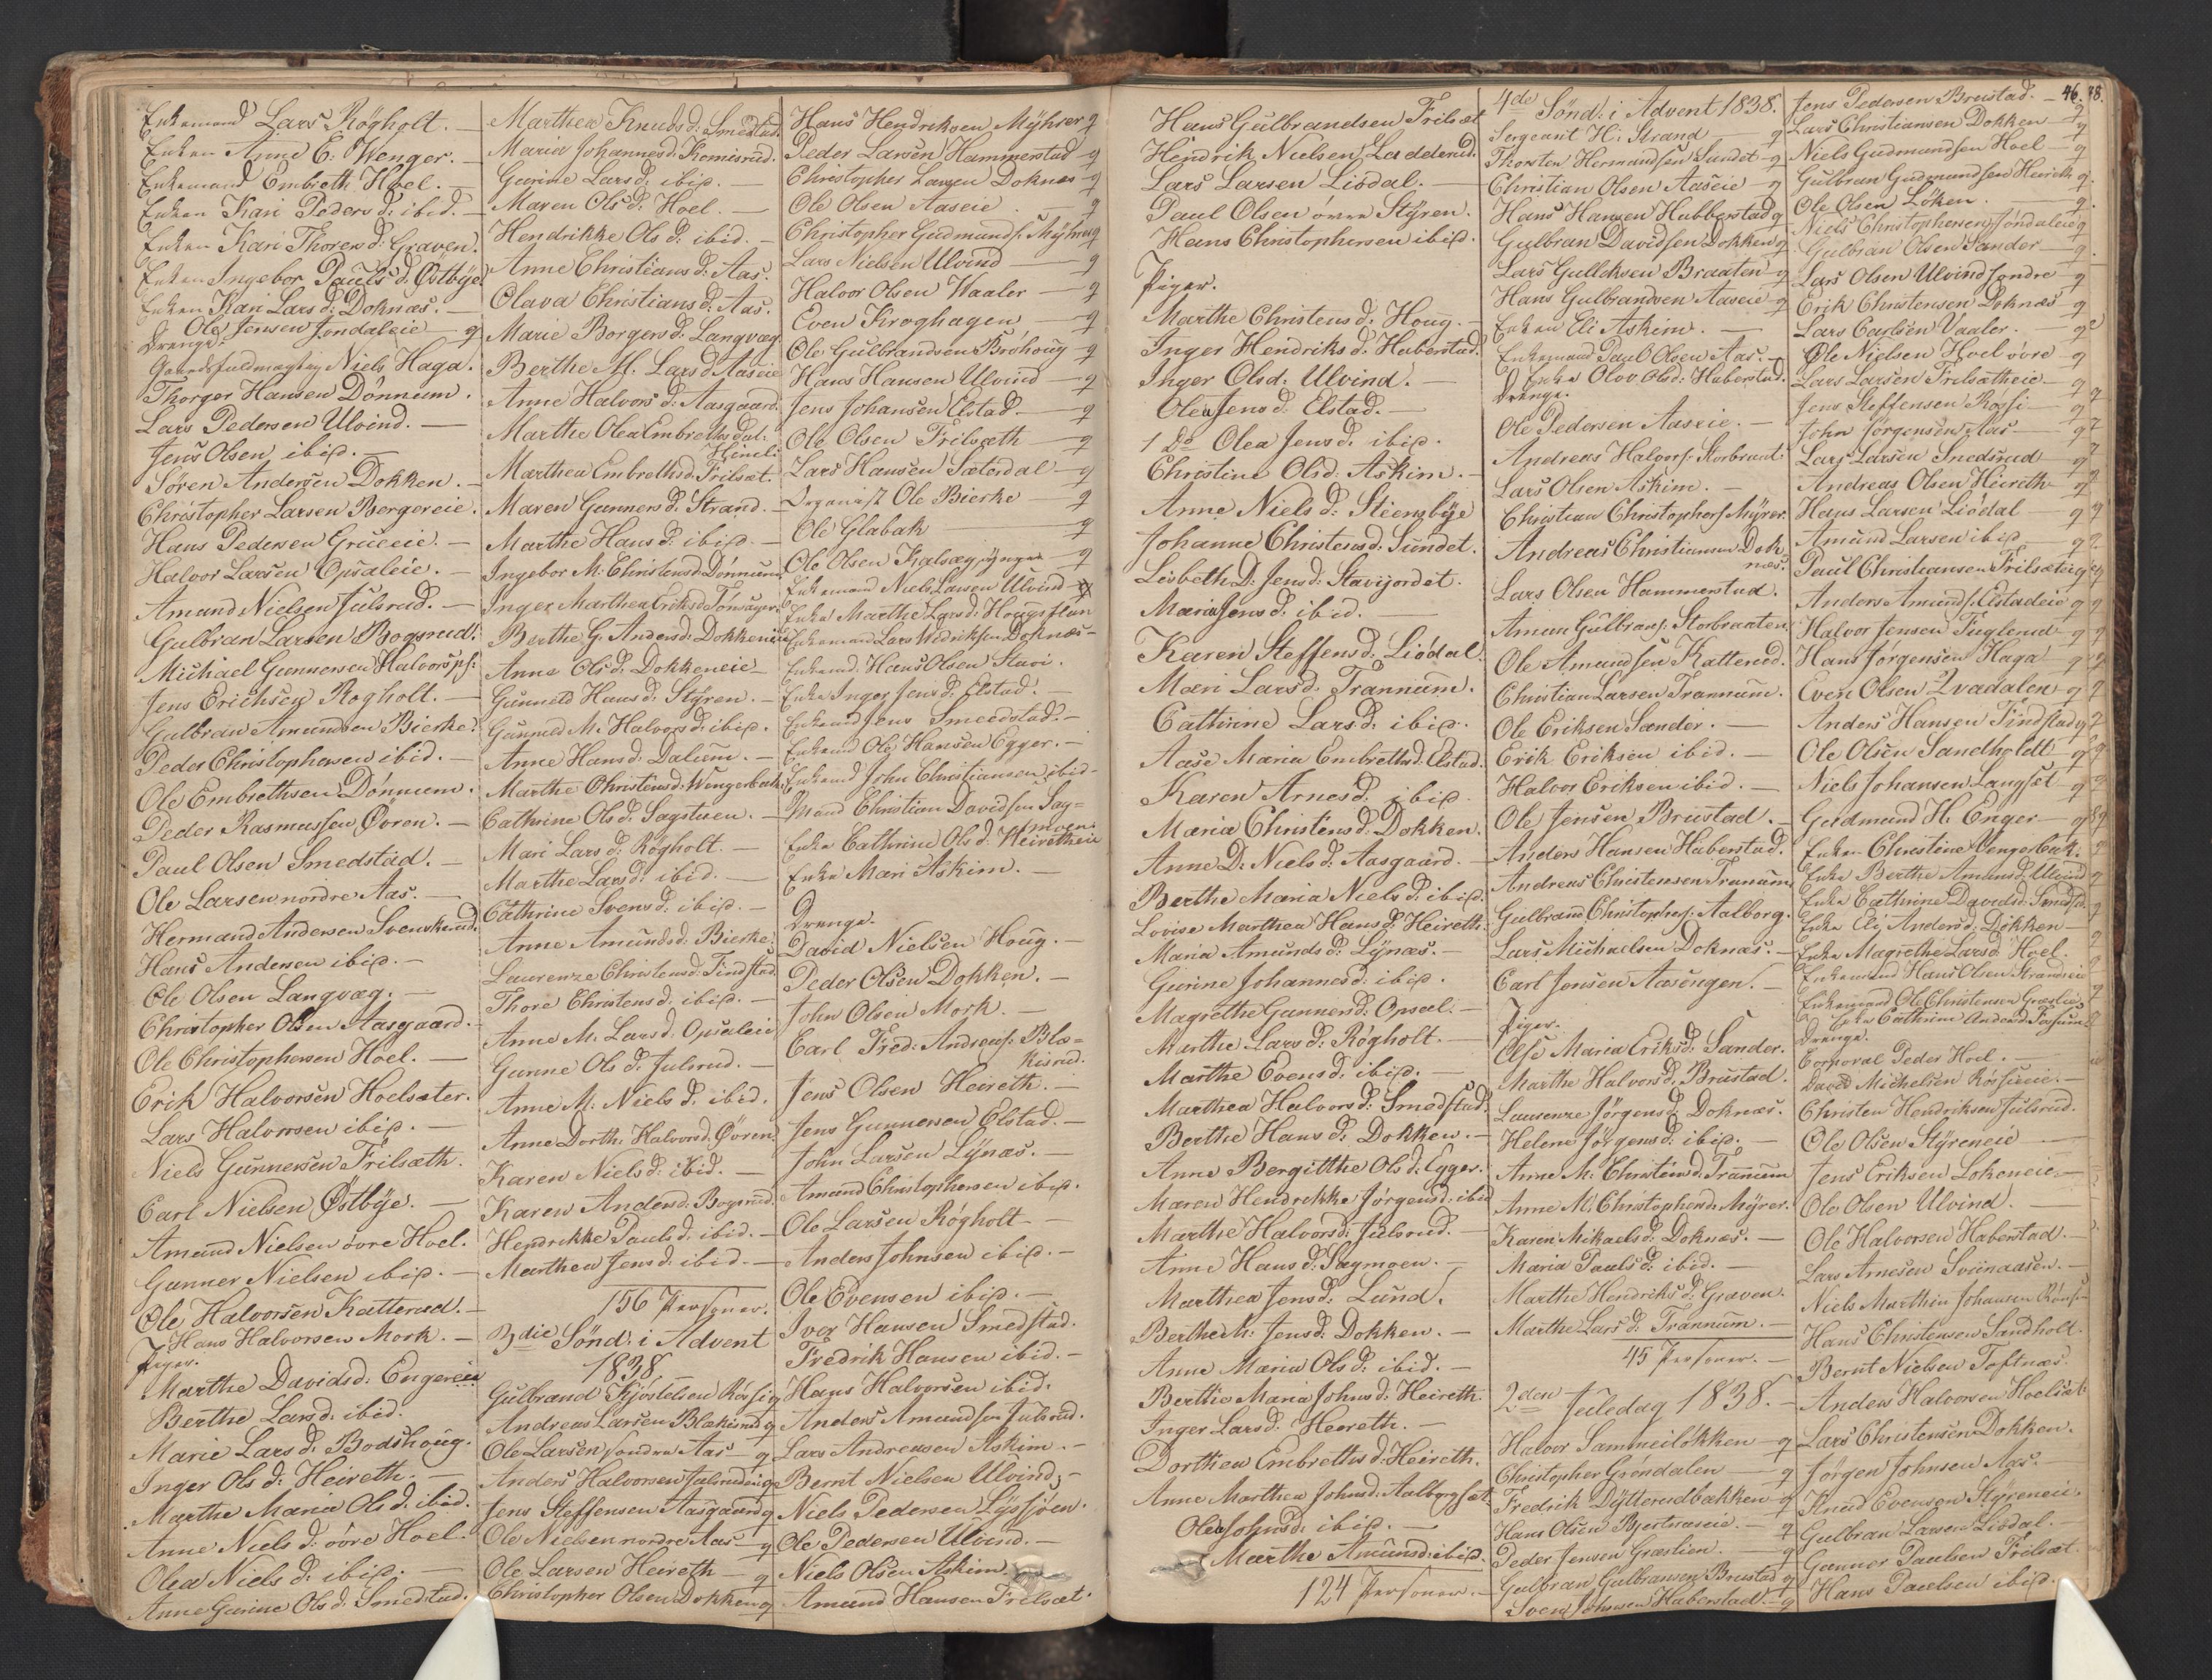 Enkemand Lars Rögholt. —
Enken Anne E: Wenger. —
Enkemand Embreth Hoel. —
Enken Kari Peders d: ibid. —
Enken Kari Thores d: Graven.
Enken Ingebor Pauls d: Østbye
Enken Kari Lars d: Doknæs. —
Ole Jensen Jondaleie — g
Drenge.
Niels Haga.
Thorger Hansen Dönnum.
Lars Pedersen Ulvind. —
Jens Olsen ibid. —
Sören Andersen Dokken. —
Christopher Larsen Bergereie.
Hans Pedersen Grueeie. —
Halvor Larsen Opsaleie. —
Amund Nielsen Julsrud. —
Gulbran Larsen Bogsrud.
Michael Gunnersen Halvorsps:
Jens Erichsen Rogholt. —
Gulbran Amundsen Bierke.
Peder Christophersen ibid. —
Ole Embrethsen Dönnum.
Peder Rasmussen Øören. —
Paul Olsen Smedstad. —
Ole Larsen nordre Aas. —
Hermand Andersen Svenskerud.
Hans Andersen ibid. —
Ole Olsen Langvæg. —
Christopher Olsen Aasgaard.
Ole Christophersen Hoel. —
Erik Halvorsen Hoelsæter.
Lars Halvorsen ibid. —
Niels Gunnersen Frilsæth.
Carl Nielsen Østbye. —
Amund Nielsen övre Hoel.
Gunner Nielsen ibid. —
Ole Halvorsen Katterud. —
Hans Halvorsen Mork. —
Piger.
Marthe Davidsd: Engereie
Berthe Larsd: ibid.
Marie Lars d: Bodshoug.
Inger Ols d: Heireth. —
Marthe Maria Ols d: ibid.
Anne Niels d: övre Hoel.
Olea Niels d: ibid. —
Anne Gurine Ols d: Smedstad.
Marthea Knuds d: Smedstad.
Maria Johannesd: Komisrud.
Gurine Lars d: ibid. —
Maren Ols d: Hoel. —
Hendrikke Ols d: ibid. —
Anne Christians d: Aas.
Olava Christians d: Aas.
Marie Borgers d: Langvæg
Berthe M. Lars d Aaseie
Anne Halvors d: Aasgaard.
Marthe Olea Embrethsdat:
Himeli
Marthea Embrethsd: Frilsæt.
Maren Gunners d: Strand. —
Marthe Hans d: ibid. —
Ingebor M: Christensd: Dönnum.
Inger Marthea Eriksd: Tönsager.
Berthe G. Andersd: Dokkeneie
Anne Ols d: Dokkeneie
Gunneld Hans d: Styren. —
Gunned M: Halvors d: ibid. —
Anne Hans d: Dalum. —
Marthe Christensd: Wengerbak.
Cathrine Ols d: Sagstuen. —
Mari Lars d: Rögholt. —
Marthe Lars d: ibid. —
Cathrine Svens d: ibid. —
Anne Amunds d: Bierke.
Laurenze Christens d: Findstad.
Thore Christens d: ibid. —
Anne M. Lars d: Opsaleie
Gunne Ols d: Julsrud. —
Anne M: Niels d: ibid. —
Anne Dorth: Halvorsd: Øören.
Karen Niels d: ibid. —
Karen Anders d: Bogsrud.
Hendrikke Pauls d: ibid. —
Marthea Jens d: ibid. —
156 Personer.
3die Sönd: i Advent
1838.
Gulbrand Kjöstelsen Rössi g
Andreas Larsen Blækisrud g
Ole Larsen söndre Aas — g
Anders Halvorsen Julsrudeie g
Jens Steffensen Aasgaard g
Ole Nielsen nordre Aas — g
Ole Larsen Heireth — g
Christopher Olsen Dokken g
Hans Hendriksen Myhrer g
Peder Larsen Hammerstad — g
Christopher Larsen Doknæs — g
Ole Olsen Aaseie — g
Christopher Gudmunds: Myhrer g
Lars Nielsen Ulvind — g
Halvor Olsen Waaler — g
Even Kroghagen — g
Ole Gulbrandsen Bröhoug — g
Hans Hansen Ulvind — g
Jens Johansen Elstad — g
Ole Olsen Frilsæth — g
Lars Hansen Sæterdal — g
Organist Ole Bierke — g
Ole Glabak — g
Ole Olsen Kalsæg yngre — g
Enkemand Niels Larsen Ulvind
Enke Marthe Lars d: Hougsstun
Enkemand Lars Hedriksen Doknæs —
Enkemd. Hans Olsen Stavi.
Enke Inger Jens d: Elstad. —
Enkemd Jens Smedstad. —
Enkemd Ole Hansen Egger. —
Enkemd John Christiansen ibid. —
Mand Christian Davidsen Sag=
moen
Enke Cathrine Ols d: Heiretheie
Enke Mari Askim. —
Drenge.
David Nielsen Houg. —
Peder Olsen Dokken. —
John Olsen Mork. —
Carl Fred: Andreas: Blæ=
kisrud.
Jens Olsen Heireth. —
Jens Gunnersen Elstad. —
John Larsen Lynæs. —
Amund Christophersen ibid.
Ole Larsen Rögholt —
Anders Johnsen ibid. —
Ole Evensen ibid. —
Iver Hansen Smedstad.
Fredrik Hansen ibid. —
Hans Halvorsen ibid.
Anders Amundsen Julsrud.
Lars Andreasen Askim. —
Bernt Nielsen Ulvind. —
Niels Pedersen Lyssjöen.
Ole Pedersen Ulvind. —
Niels Olsen Askim.
Amund Hansen Frilsæt.
Hans Gulbrandsen Frilsæt
Hendrik Nielsen Ladderud.
Lars Larsen Liödal. —
Paul Olsen övre Styren.
Hans Christophersen ibid.
Piger.
Marthe Christens d: Houg. —
Inger Hendriks d: Haberstad.
Inger Olsd: Ulvind. —
Olea Jens d: Elstad. —
1 Do Olea Jens d: ibid.
Christine Olsd: Askim. —
Anne Niels d: Steensbye
Johanne Christensd: Sundet.
Lisbeth D: Jensd: Stavijordet.
Maria Jens d: ibid. —
Karen Steffens d: Liödal.
Mari Larsd: Trannum.
Cathrine Lars d: ibid.
Aase Maria Embrethsd: Elstad.
Karen Arnes d: ibid.
Maria Christens d: Dokken.
Anne D: Niels d: Aasgaard. —
Berthe Maria Niels d: ibid.
Lovise Marthea Hans d: Heireth.
Maria Amunds d: Lynæs. —
Gurine Johannesd: ibid.
Magrethe Gunners d: Opsal. —
Marthe Lars d: Rögholt. —
Marthe Evens d: ibid. —
Marthea Halvors d: Smedstad.
Berthe Hans d: Dokken. —
Anne Bergitthe Ols d: Egger.
Maren Hendrikke Jörgensd: ibid
Marthe Halvorsd: Julsrud. —
Anne Hans d: Sagmoen. —
Marthea Jens d: Lund.
Berthe M: Jens d: Dokken. —
Anne Maria Ols d: ibid. —
Berthe Maria Johns d: Heireth.
Inger Larsd: Heireth.
Dorthea Embreths d: Heireth.
Anne Marthea Johnsd: Aalborgsæt.
Olea Johnsd: ibid. —
Marthe Amundsd: ibid.
124 Personer. —
4de Sönd: i Advent 1838.
Sergeant H: Strand — g
Thorsten Hermandsen Sundet — g
Christian Olsen Aaseie — g
Hans Hansen Hubberstad g
Gulbran Davidsen Dokken g
Lars Gulleksen Braaten — g
Hans Gulbrandsen Aaseie — g
Enken Eli Askim. —
Enkemand Paul Olsen Aas. —
Enke Olov Olsd: Haberstad.
Drenge.
Ole Pedersen Aaseie. —
Andreas Halvors: Storbraat:
Lars Olsen Askim. —
Christian Christophers: Myrer.
Andreas Christiansen Dok=
næs.
Lars Olsen Hammerstad.
Amun Gulbrans: Storbraaten
Ole Amundsen Katterud.
Christian Larsen Trannum.
Ole Eriksen Sander. —
Erik Eriksen ibid. —
Halvor Eriksen ibid. —
Ole Jensen Brustad. —
Anders Hansen Haberstad.
Andreas Christensen Trannum
Gulbrand Christophers: Aalborg.
Lars Michaelsen Doknæs. —
Carl Jensen Aasengen. —
Piger.
Else Maria Eriksd: Sander.
Marthe Halvorsd: Brustad.
Laurenze Jörgensd: Doknæs.
Helene Jörgensd: ibid. —
Anne M: Christensd: Trannum
Anne M. Christophersd: Myrer.
Karen Mikaels d: Doknæs. —
Maria Pauls d: ibid. —
Marthe Hendriks d: Graven.
Marthe Lars d: Trannum. —
45 Personer. —
2den Juledag 1838. —
Halvor Sammeilökken — g
Christopher Gröndalen — g
Fredrik Dytterudbakken — g
Hans Olsen — g
Peder Jensen Græslien. — g
Gulbran Gulbransen Brustad g
Sven Johnsen Haberstad — g
46. 48.
Jens Pedersen Brustad. — g
Lars Christiansen Dokken — g
Niels Gudmundsen Hoel — g
Gulbran Gudmundsen Heireth g.
Ole Olsen Löken — g.
Niels Christophersen Jöndaleie g
Gulbran Olsen Sander — g.
Lars Olsen Ulvind söndre — g
Erik Christensen Doknæs — g
Lars Carlsen Vaaler. — g
Ole Nielsen Hoel övre — g
Lars Larsen Frilsætheie — g
Jens Steffensen Rössi — g
John Jörgensen Aas — g
Lars Larsen Snedsrud — g
Andreas Olsen Hiereth — g
Hans Larsen Liödal — g
Amund Larsen ibid — g
Paul Christiansen Frilsæteie g
Anders Amunds: Elstadeie g
Halvor Jensen Fuglerud — g
Hans Jörgensen Haga — g
Even Olsen Qvadalen — g
Anders Hansen Findstad g
Ole Olsen Sandholdt — g
Niels Johansen Langset — g
Gudmund H. Enger — g
Enken Christine Vengerbak.
Enke Berthe Amunds d: Ulvind
Enke Cathrine Davidsd: Smedst.
Enke Eli Andersd: Dokken —
Enke Magrethe Larsd: Hoel.
Enkemand Hans Olsen Strandeie
Enkemand Ole Christensen Græslien
Enke Cathrine Andersd: Fossum.
Drenge.
Corporal Peder Hoel. —
David Michelsen Rössieie. —
Christen Hendriksen Julsrud.
Ole Olsen Styreneie —
Jens Eriksen Lökeneie —
Ole Olsen Ulvind. —
Ole Halvorsen Haberstad. —
Lars Arnesen Svenaasen. —
Niels Marthin Johansen
Hans Christensen Sandholt.
Bernt Nielsen Toftnæs.
Anders Halvorsen Hoelsæt
Lars Christensen Dokken.
Jörgen Johnsen Aas.
Knud Evensen Styreneie
Gulbran Larsen Liödal. —
Gunner Paulsen Frilsæt.
Hans Paulsen ibid.